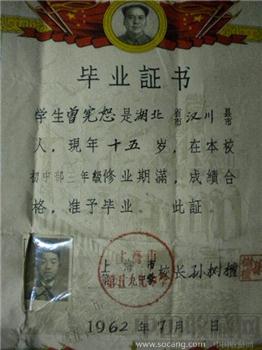 毕业証书
学生曾宪恕是湖北省市汉川县市
人，現年十五岁，在本校
初中部三年級修业期滿，成績合
格，准予毕业。 此証。
上海市
校长孙树
1962年7月 日
www.socang.com